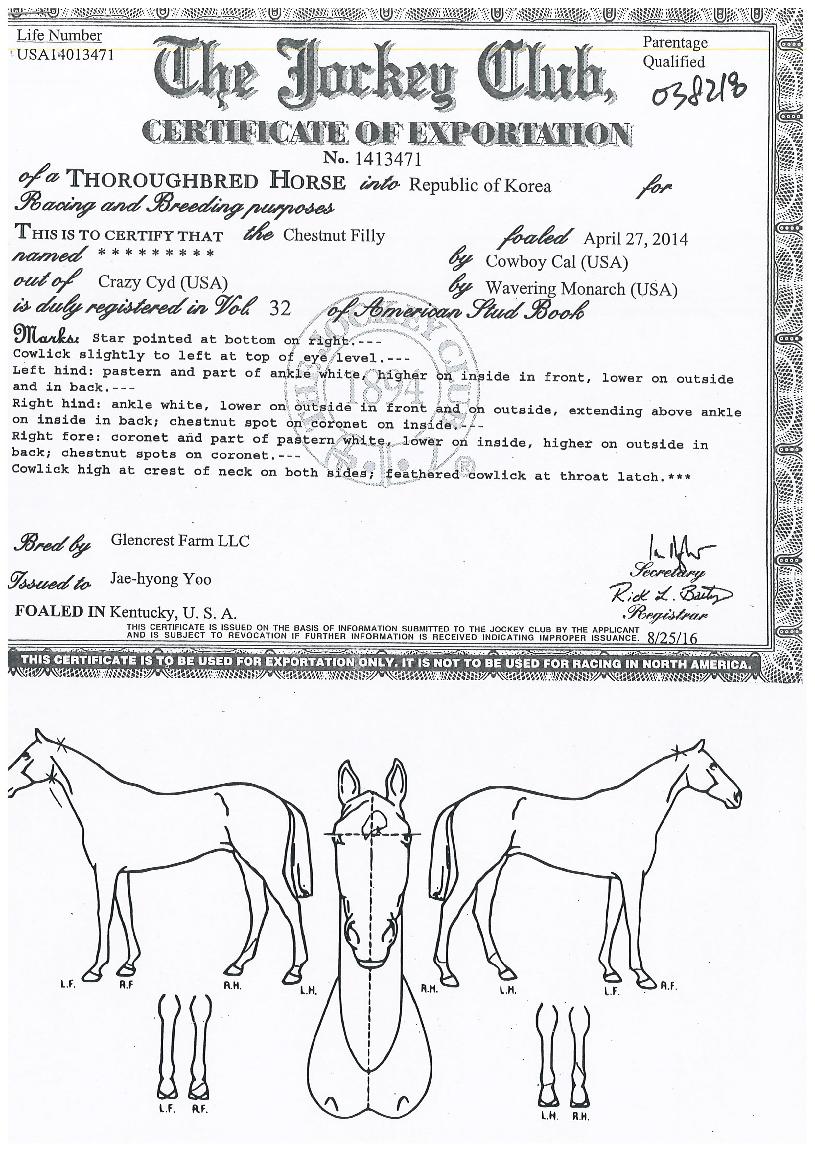 Life Number
USA14013471
The Jockey Club,
Parentage
Qualified
038218
CERTIFICATE OF EXPORTATION
No. 1413471
of a THOROUGHBRED HORSE into Republic of Korea for
Racing and Breeding purposes
THIS IS TO CERTIFY THAT the Chestnut Filly foaled April 27, 2014
named * * * * * * * * * by Cowboy Cal (USA)
out of Crazy Cyd (USA) by Wavering Monarch (USA)
is duly registered in Vol. 32 of American Stud Book
THE JOCKEY CLUB
1894
Marks: Star pointed at bottom on right.---
Cowlick slightly to left at top of eye level.---
Left hind: pastern and part of ankle white, higher on inside in front, lower on outside
and in back.---
Right hind: ankle white, lower on outside in front and on outside, extending above ankle
on inside in back; chestnut spot on coronet on inside.---
Right fore: coronet and part of pastern white, lower on inside, higher on outside in
back; chestnut spots on coronet.---
Cowlick high at crest of neck on both sides; feathered cowlick at throat latch.***
Bred by Glencrest Farm LLC
Secretary
Issued to Jae-hyong Yoo
Rick L. Bailey
Registrar
FOALED IN Kentucky, U. S. A.
THIS CERTIFICATE IS ISSUED ON THE BASIS OF INFORMATION SUBMITTED TO THE JOCKEY CLUB BY THE APPLICANT
AND IS SUBJECT TO REVOCATION IF FURTHER INFORMATION IS RECEIVED INDICATING IMPROPER ISSUANCE. 8/25/16
THIS CERTIFICATE IS TO BE USED FOR EXPORTATION ONLY. IT IS NOT TO BE USED FOR RACING IN NORTH AMERICA.
L.F. R.F R.H. L.H. R.H. L.H. L.F. R.F.
L.F. R.F. L.H. R.H.